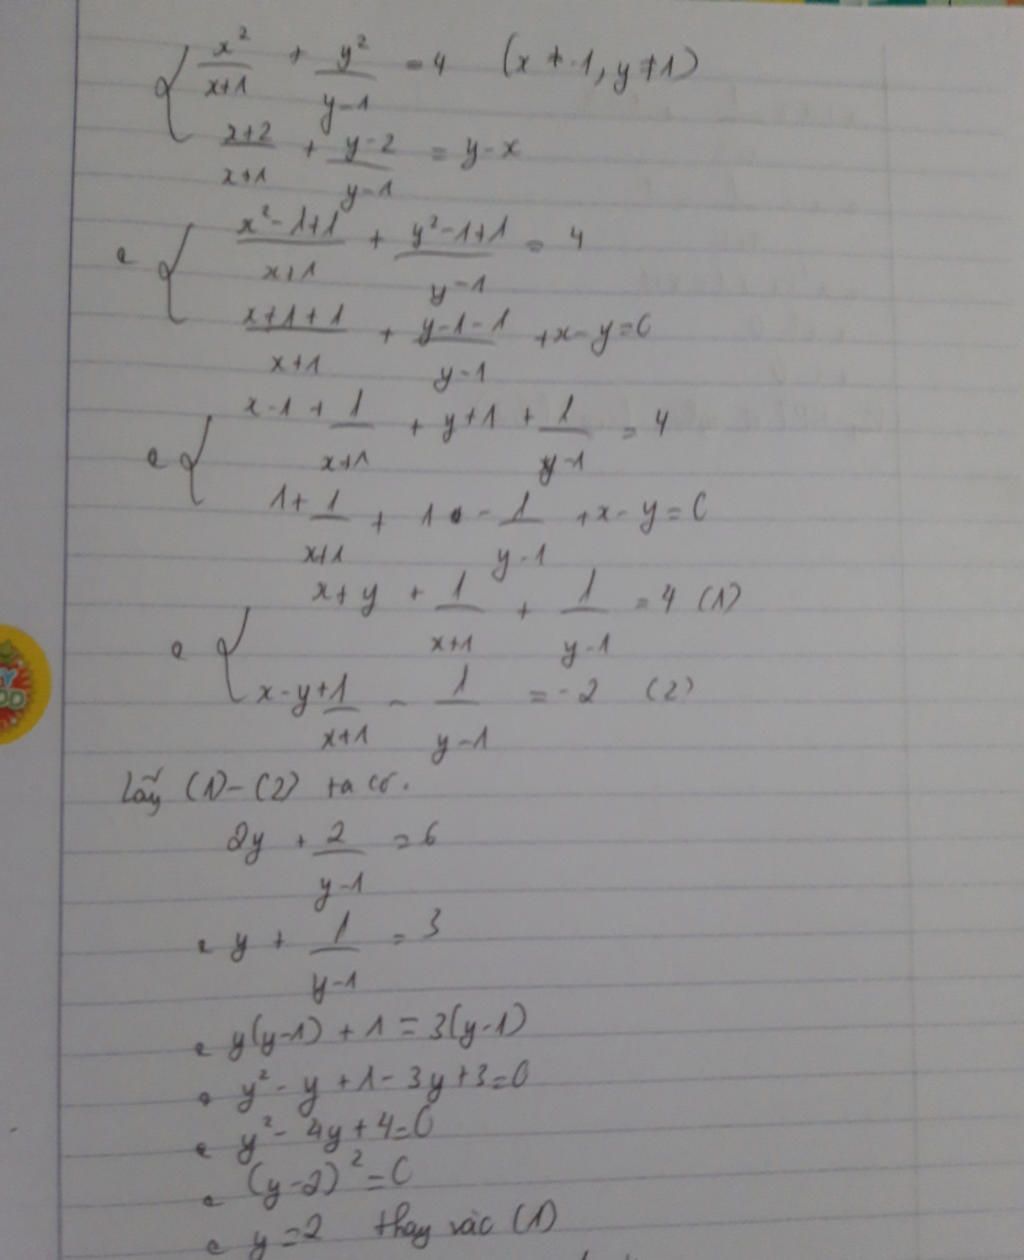 { x²/(x+1) + y²/(y-1) = 4 (x ≠ -1, y ≠ 1)
(x+2)/(x+1) + (y-2)/(y-1) = y-x
⇔ { (x²-1+1)/(x+1) + (y²-1+1)/(y-1) = 4
(x+1+1)/(x+1) + (y-1-1)/(y-1) + x-y=0
⇔ { x-1 + 1/(x+1) + y+1 + 1/(y-1) = 4
1 + 1/(x+1) + 1 - 1/(y-1) + x-y=0
⇔ { x+y + 1/(x+1) + 1/(y-1) = 4 (1)
x-y + 1/(x+1) - 1/(y-1) = -2 (2)
Lấy (1)-(2) ta có.
2y + 2/(y-1) = 6
⇔ y + 1/(y-1) = 3
⇔ y(y-1) + 1 = 3(y-1)
⇔ y² - y + 1 - 3y + 3 = 0
⇔ y² - 4y + 4 = 0
⇔ (y-2)² = 0
⇔ y = 2 thay vào (1)